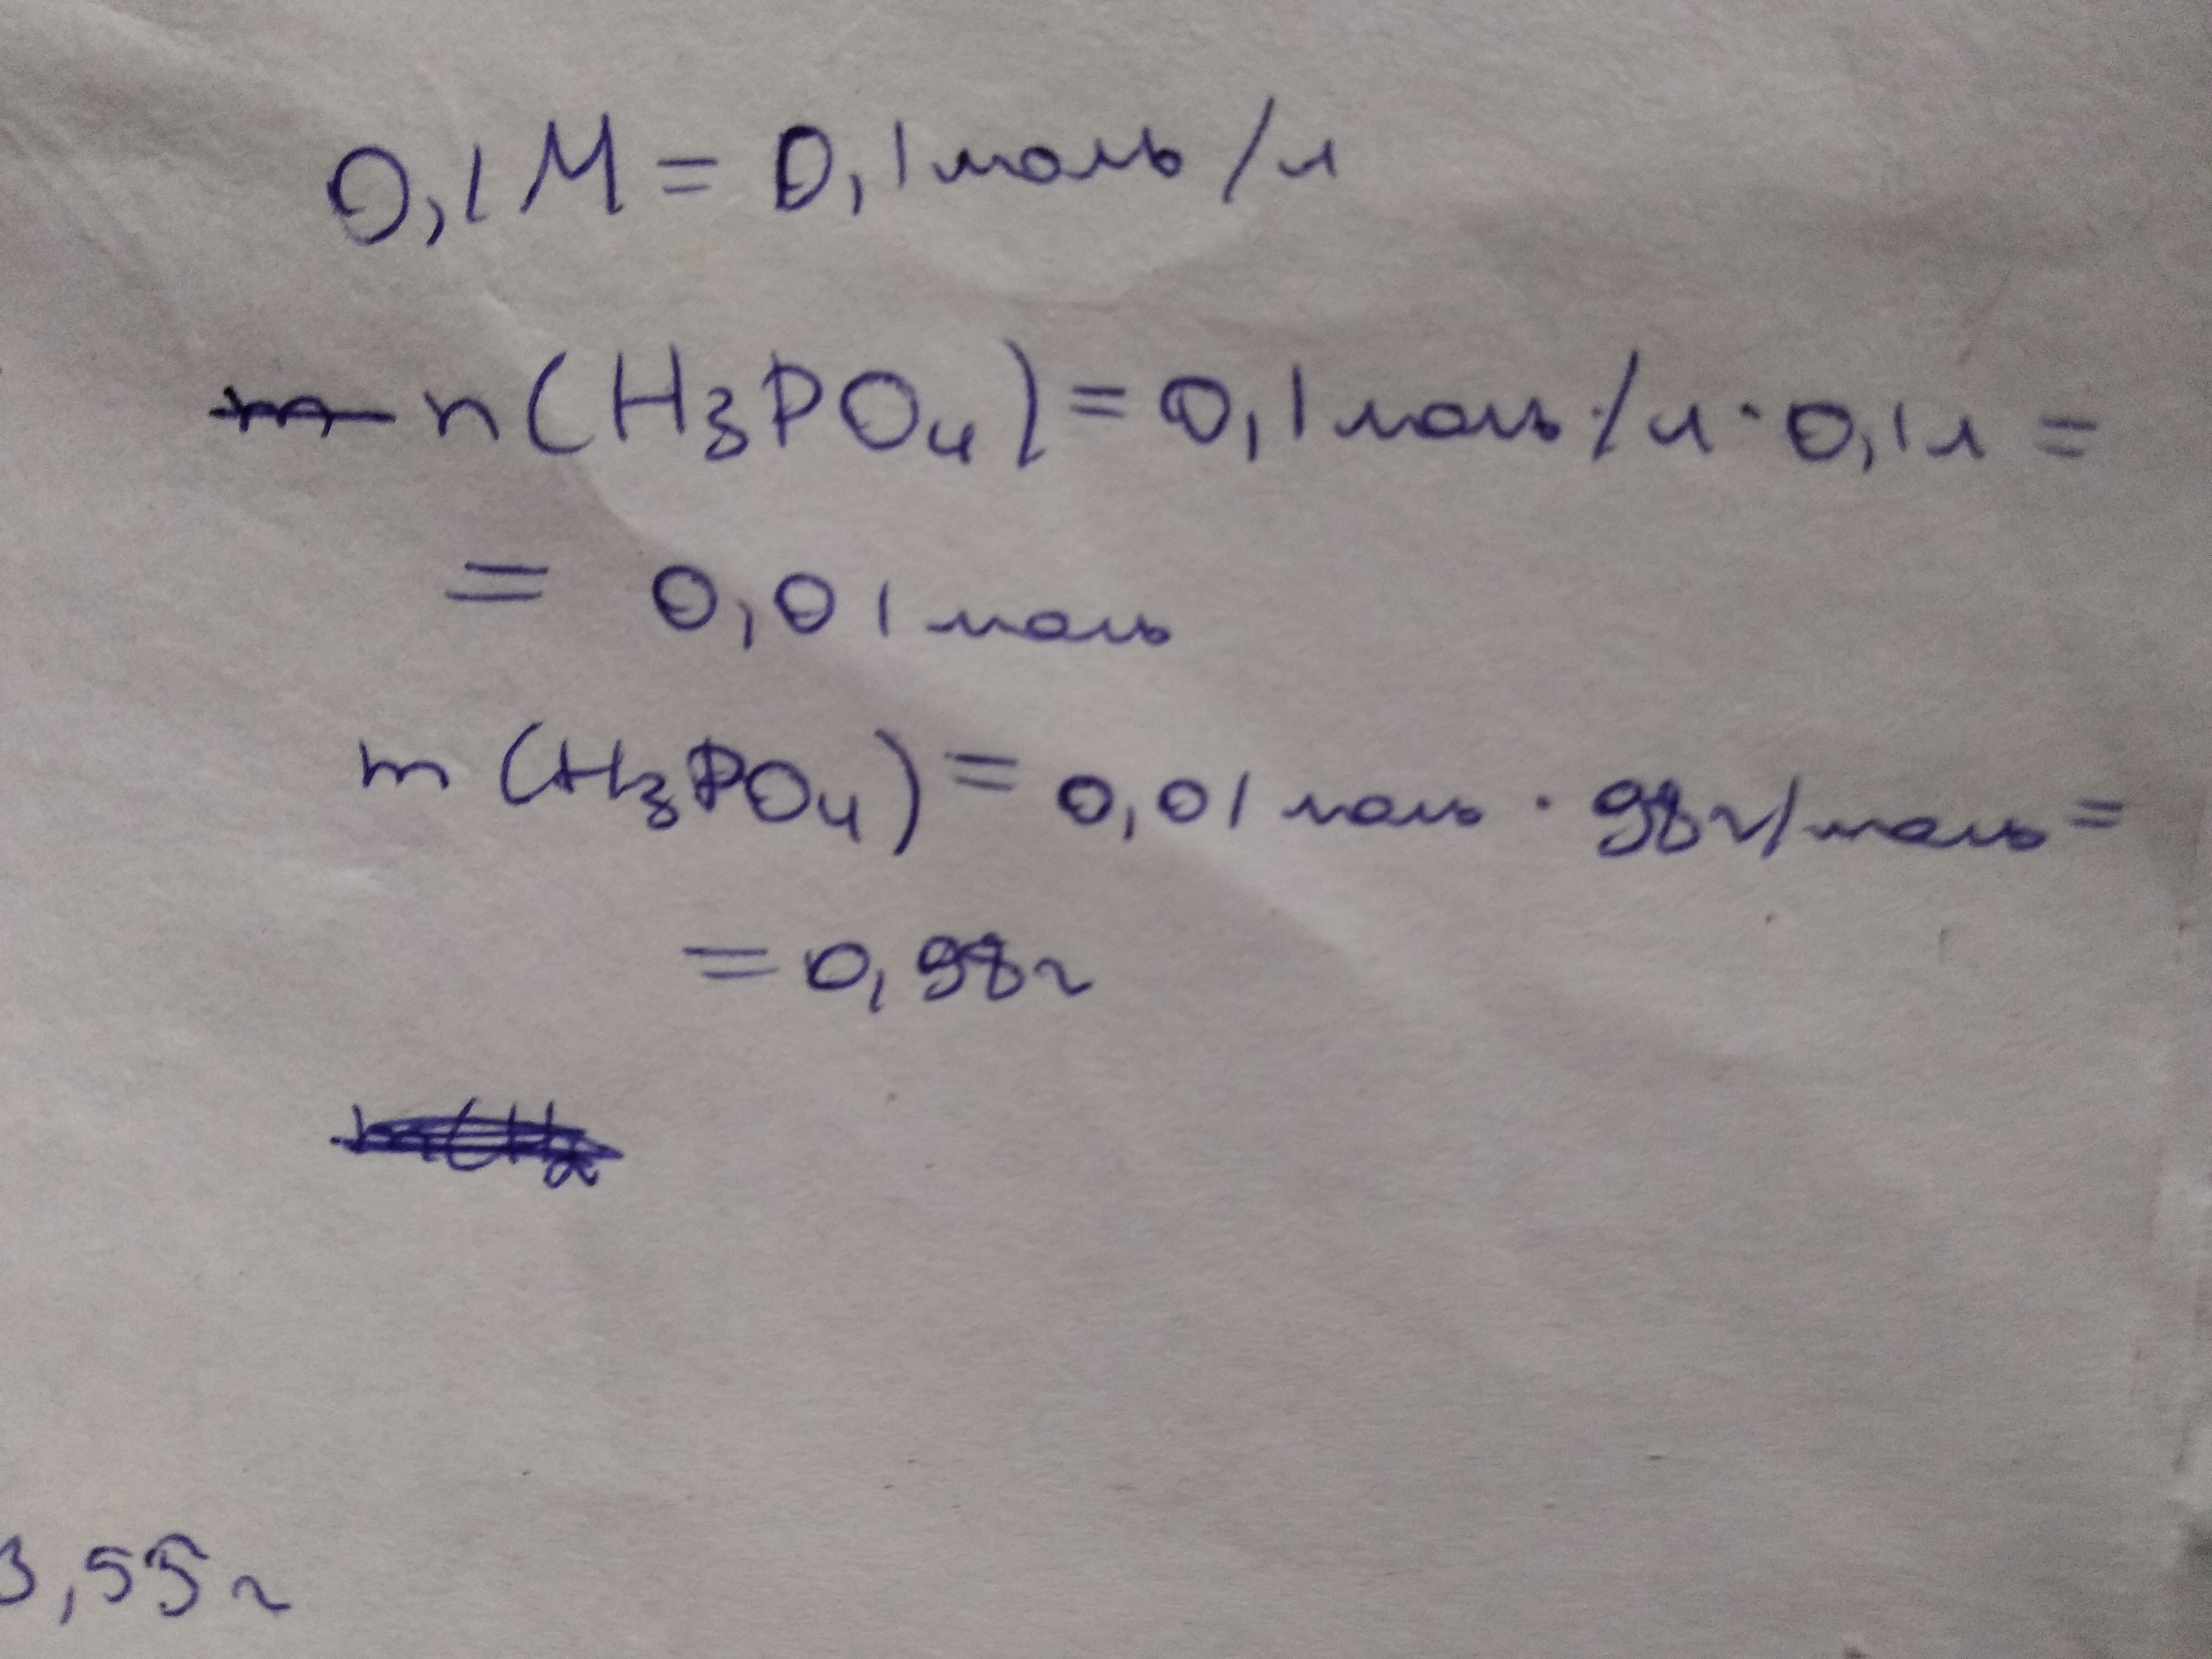 0,1 М = 0,1 моль/л
n(H₃PO₄) = 0,1 моль/л · 0,1 л =
= 0,01 моль
m (H₃PO₄) = 0,01 моль · 98 г/моль =
= 0,98 г
3,55 г